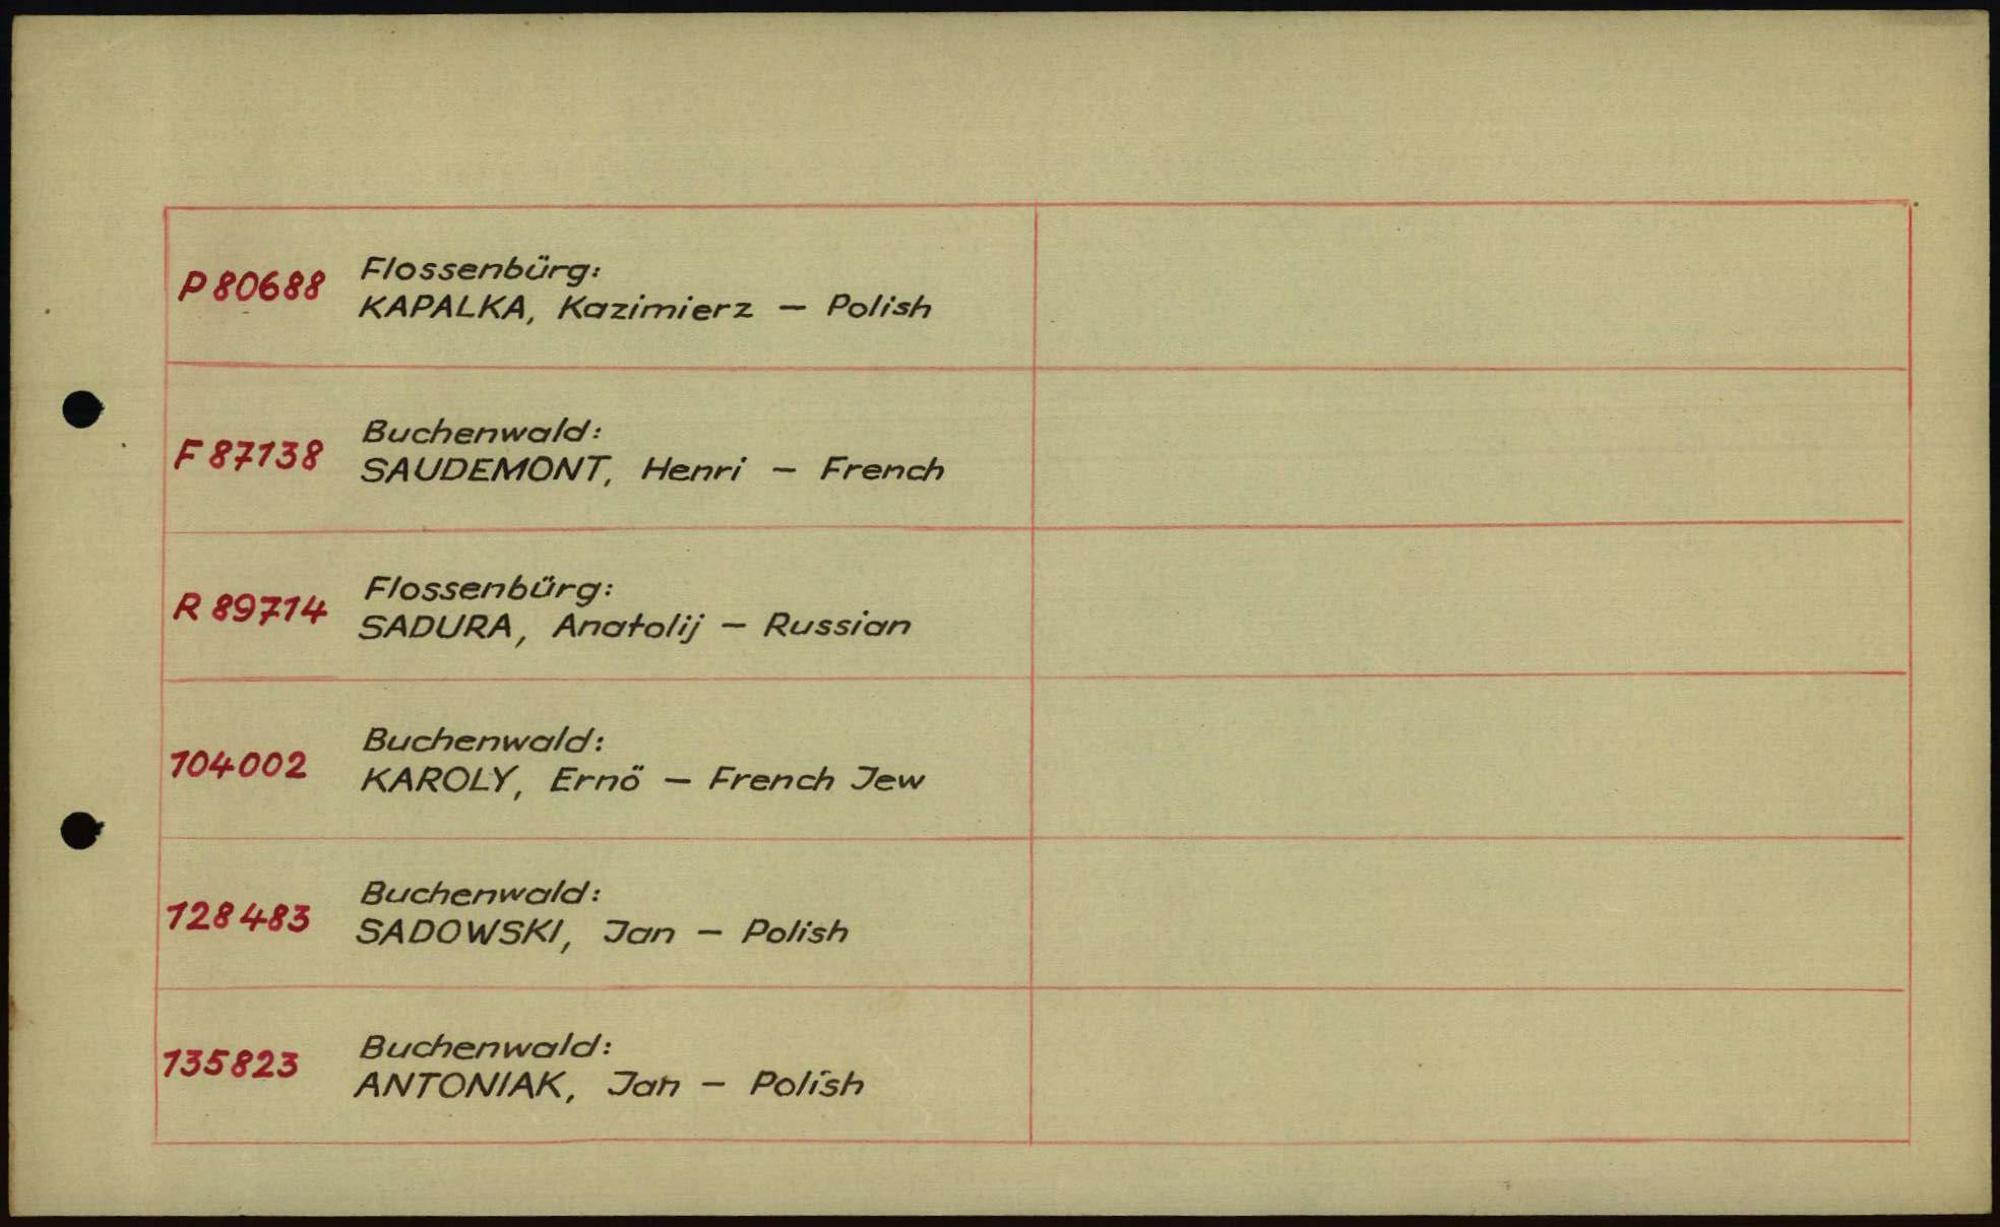 P 80688 Flossenbürg:
KAPALKA, Kazimierz – Polish
F 87138 Buchenwald:
SAUDEMONT, Henri – French
R 89714 Flossenbürg:
SADURA, Anatolij – Russian
104002 Buchenwald:
KAROLY, Ernő – French Jew
128483 Buchenwald:
SADOWSKI, Jan – Polish
135823 Buchenwald:
ANTONIAK, Jan – Polish